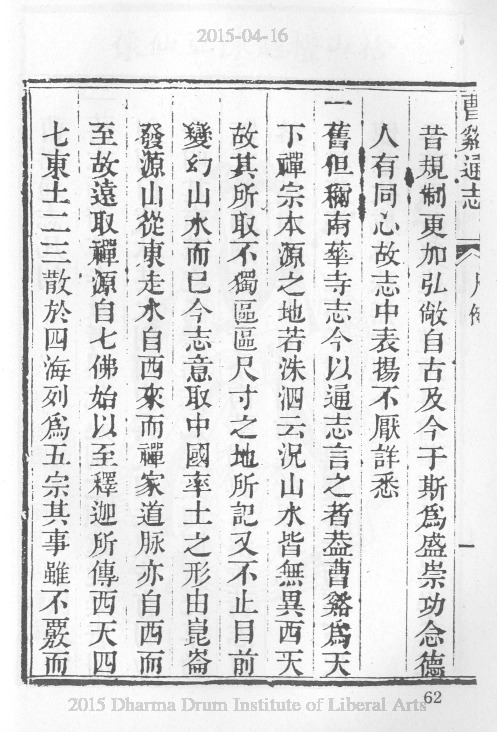 2015-04-16
曹谿通志
凡例
一
昔規制更加弘敞自古及今于斯爲盛崇功念德
人有同心故志中表揚不厭詳悉
一舊但稱南華寺志今以通志言之者葢曹谿爲天
下禪宗本源之地若洙泗云況山水皆無異西天
故其所取不獨區區尺寸之地所記又不止目前
變幻山水而巳今志意取中國率土之形由崑崙
發源山從東走水自西來而禪家道脉亦自西而
至故遠取禪源自七佛始以至釋迦所傳西天四
七東土二三散於四海列爲五宗其事雖不覈而
62
2015 Dharma Drum Institute of Liberal Arts